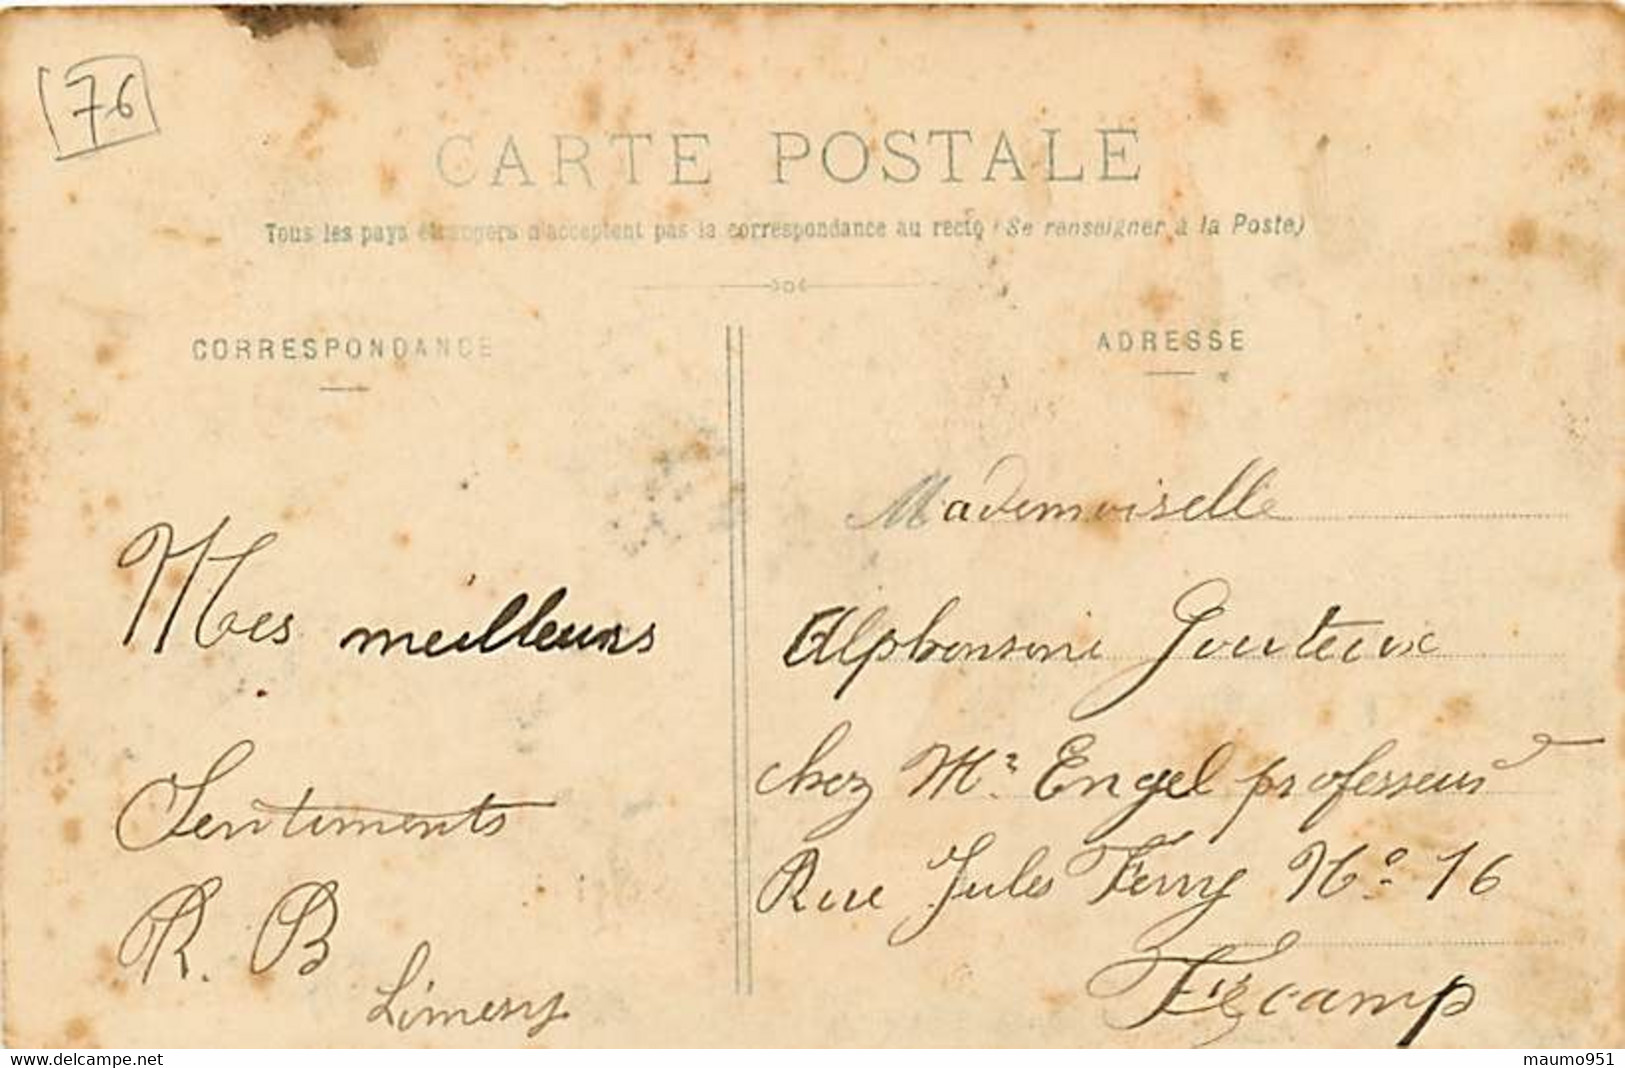 76
CARTE POSTALE
Tous les pays étrangers n'acceptent pas la correspondance au recto (Se renseigner à la Poste)
CORRESPONDANCE
ADRESSE
Mes meilleurs
Sentiments
R. B
Limesy
Mademoiselle
Alphonsine Gouteux
chez Mr Engel professeur
Rue Jules Ferry No 16
Fécamp
maumo951